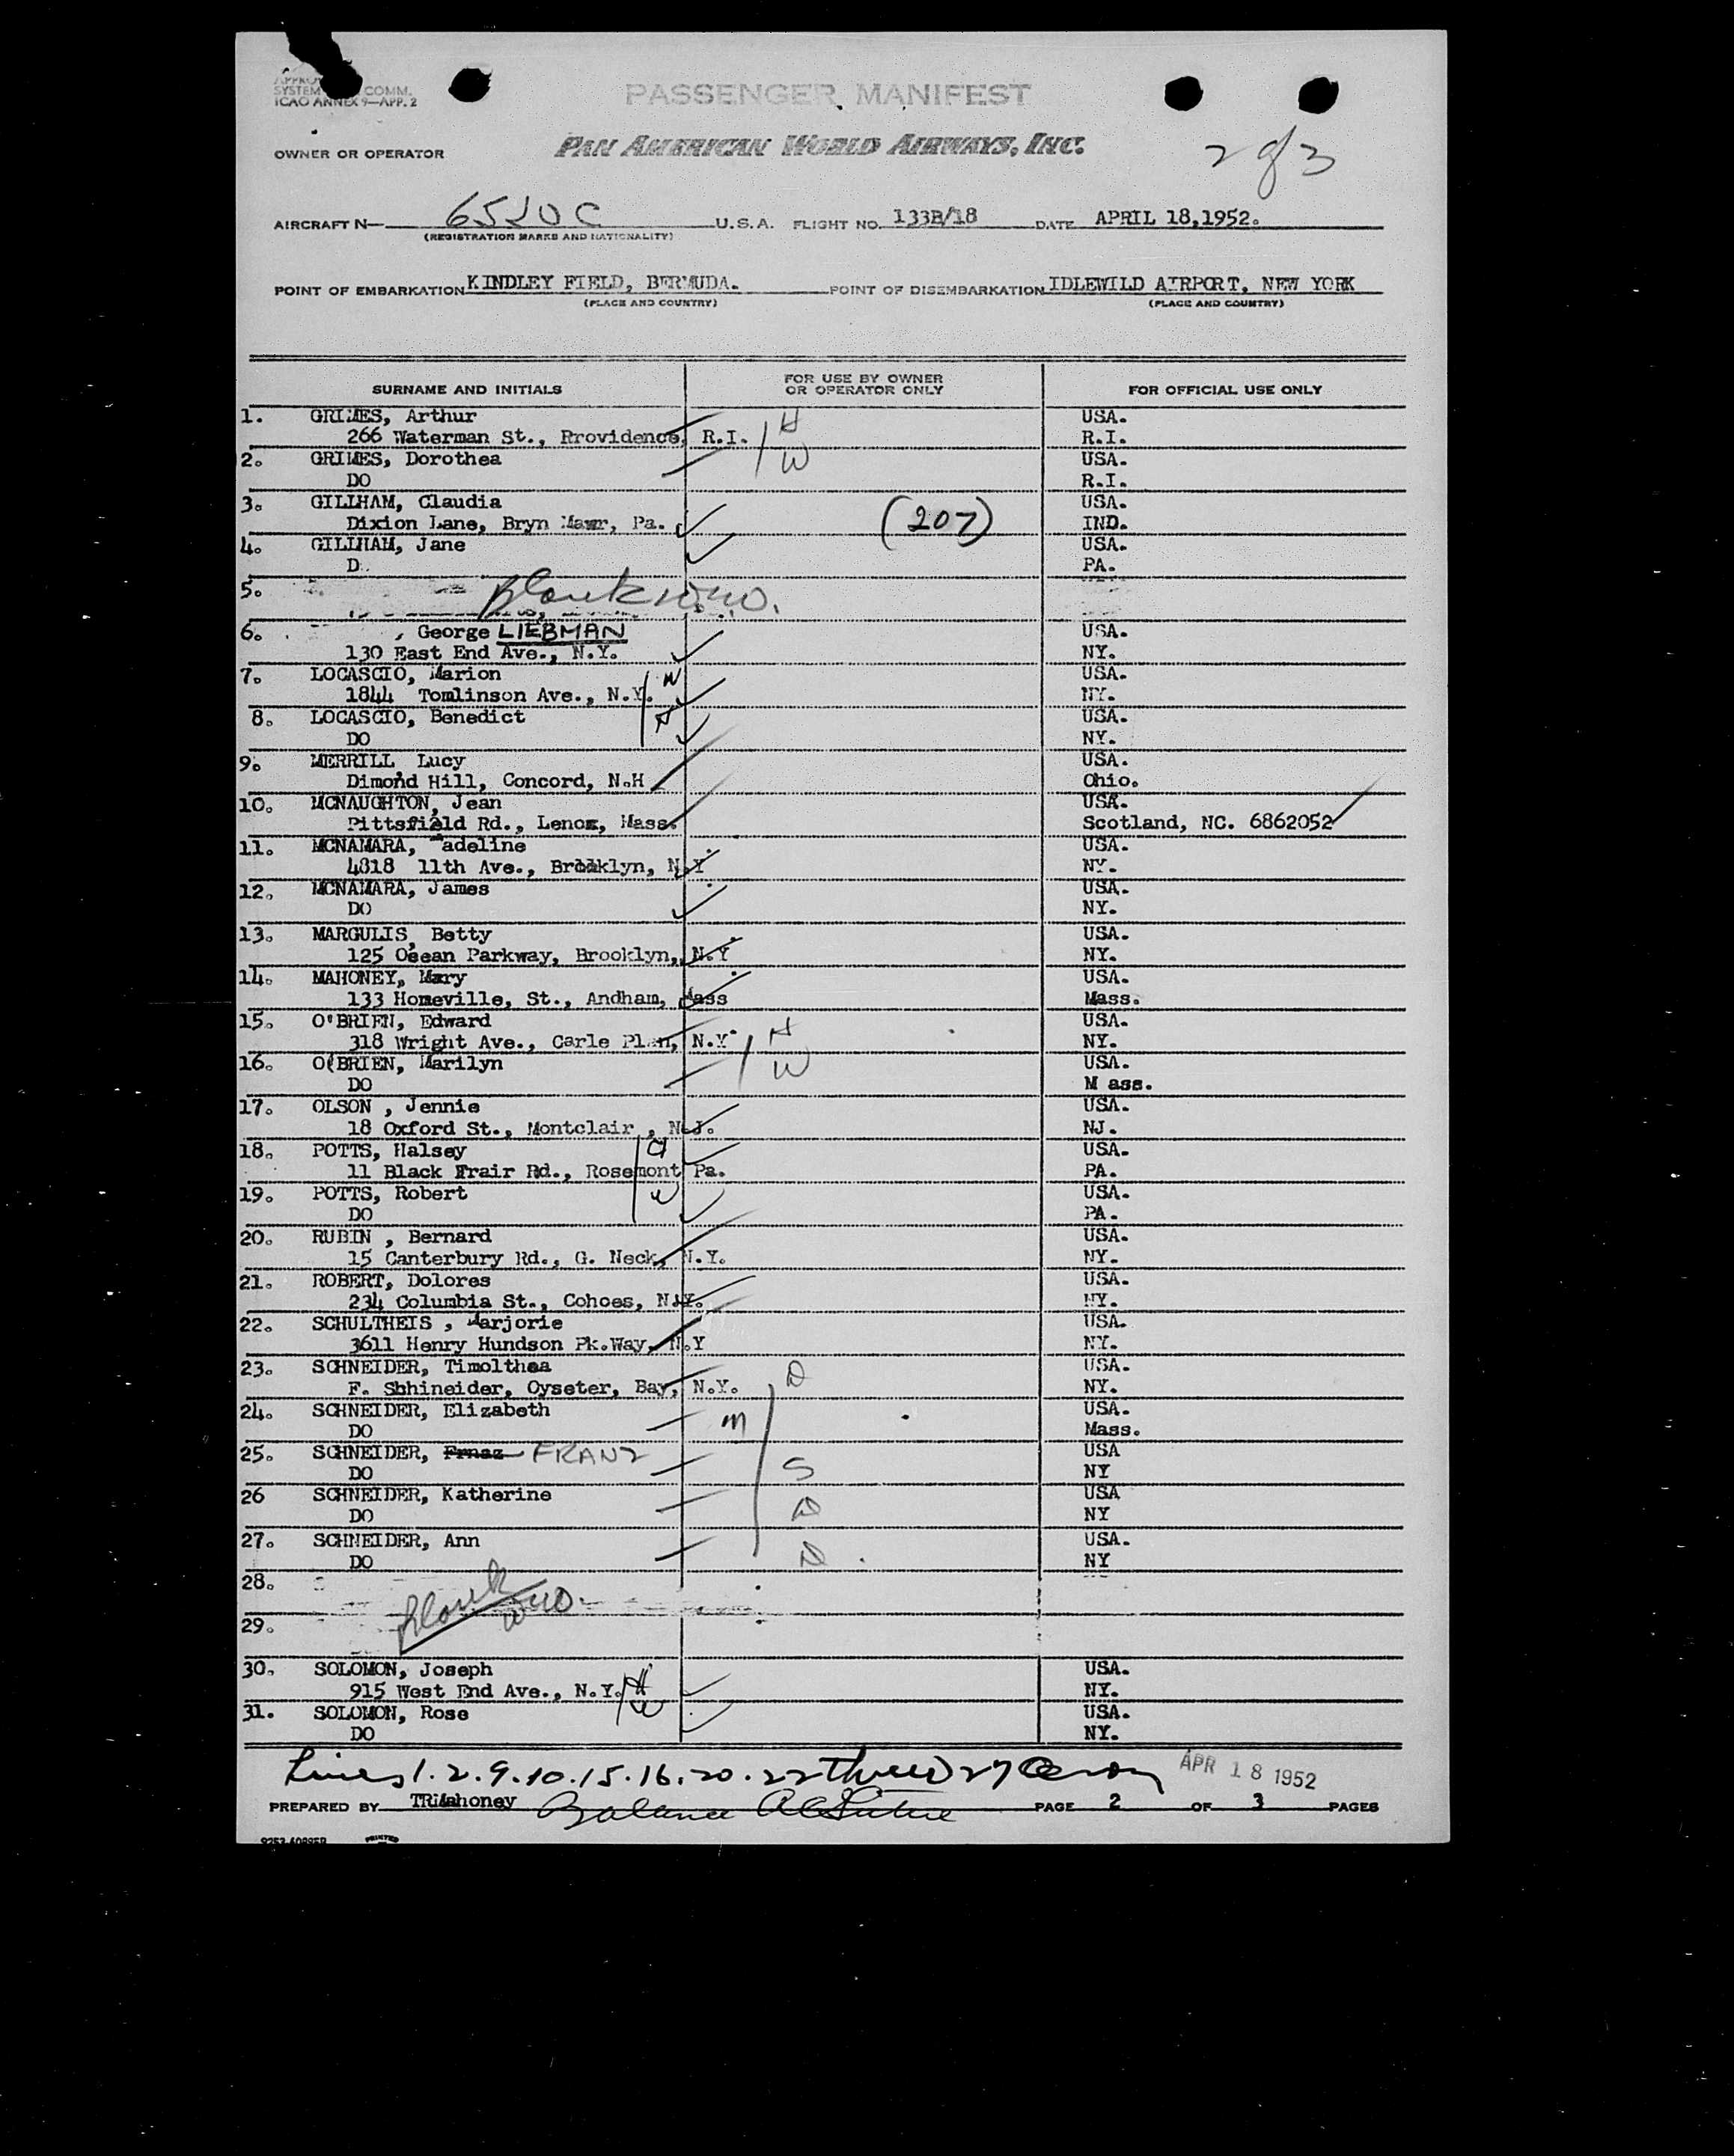 SYSTEM COMM.
ICAO ANNEX 9—APP. 2
PASSENGER MANIFEST
OWNER OR OPERATOR PAN AMERICAN WORLD AIRWAYS, INC.
2 of 3
AIRCRAFT N— 6520C U.S.A. FLIGHT NO. 133B/18 DATE APRIL 18,1952.
(REGISTRATION MARKS AND NATIONALITY)
POINT OF EMBARKATION KINDLEY FIELD, BERMUDA. POINT OF DISEMBARKATION IDLEWILD AIRPORT, NEW YORK
(PLACE AND COUNTRY) (PLACE AND COUNTRY)
SURNAME AND INITIALS FOR USE BY OWNER OR OPERATOR ONLY FOR OFFICIAL USE ONLY
1. GRIMES, Arthur H USA.
266 Waterman St., Rrovidence, R.I. R.I.
2. GRIMES, Dorothea W USA.
DO R.I.
3. GILLHAM, Claudia (207) USA.
Dixion Lane, Bryn Mawr, Pa. IND.
4. GILLHAM, Jane USA.
D PA.
5. Blank
6. , George LIEBMAN USA.
130 East End Ave., N.Y. NY.
7. LOCASCIO, Marion W USA.
1844 Tomlinson Ave., N.Y. NY.
8. LOCASCIO, Benedict H USA.
DO NY.
9. MERRILL, Lucy USA.
Dimond Hill, Concord, N.H Ohio.
10. MCNAUGHTON, Jean USA.
Pittsfield Rd., Lenox, Mass. Scotland, NC. 6862052
11. MCNAMARA, adeline USA.
4818 11th Ave., Brooklyn, N.Y NY.
12. MCNAMARA, James USA.
DO NY.
13. MARGULIS, Betty USA.
125 Ocean Parkway, Brooklyn, N.Y NY.
14. MAHONEY, Mary USA.
133 Homeville, St., Andham, Mass Mass.
15. O'BRIEN, Edward H USA.
318 Wright Ave., Carle Plan, N.Y NY.
16. O(BRIEN, Marilyn W USA.
DO M ass.
17. OLSON , Jennie USA.
18 Oxford St., Montclair , N.J. NJ.
18. POTTS, Halsey USA.
11 Black Frair Rd., Rosemont Pa. PA.
19. POTTS, Robert W USA.
DO PA.
20. RUBIN , Bernard USA.
15 Canterbury Rd., G. Neck, N.Y. NY.
21. ROBERT, Dolores USA.
234 Columbia St., Cohoes, N.Y. NY.
22. SCHULTHEIS , Marjorie USA.
3611 Henry Hundson Pk.Way, N.Y NY.
23. SCHNEIDER, Timolthea D USA.
F. Shhineider, Oyseter, Bay, N.Y. NY.
24. SCHNEIDER, Elizabeth M USA.
DO Mass.
25. SCHNEIDER, Frnaz FRANZ USA
DO S NY
26 SCHNEIDER, Katherine USA
DO D NY
27. SCHNEIDER, Ann USA.
DO D NY
28. Blank
29.
30. SOLOMON, Joseph H USA.
915 West End Ave., N.Y. NY.
31. SOLOMON, Rose W USA.
DO NY.
Lines 1.2.9.10.15.16.20.22 thru 27 APR 18 1952
PREPARED BY TRMahoney Balance PAGE 2 OF 3 PAGES